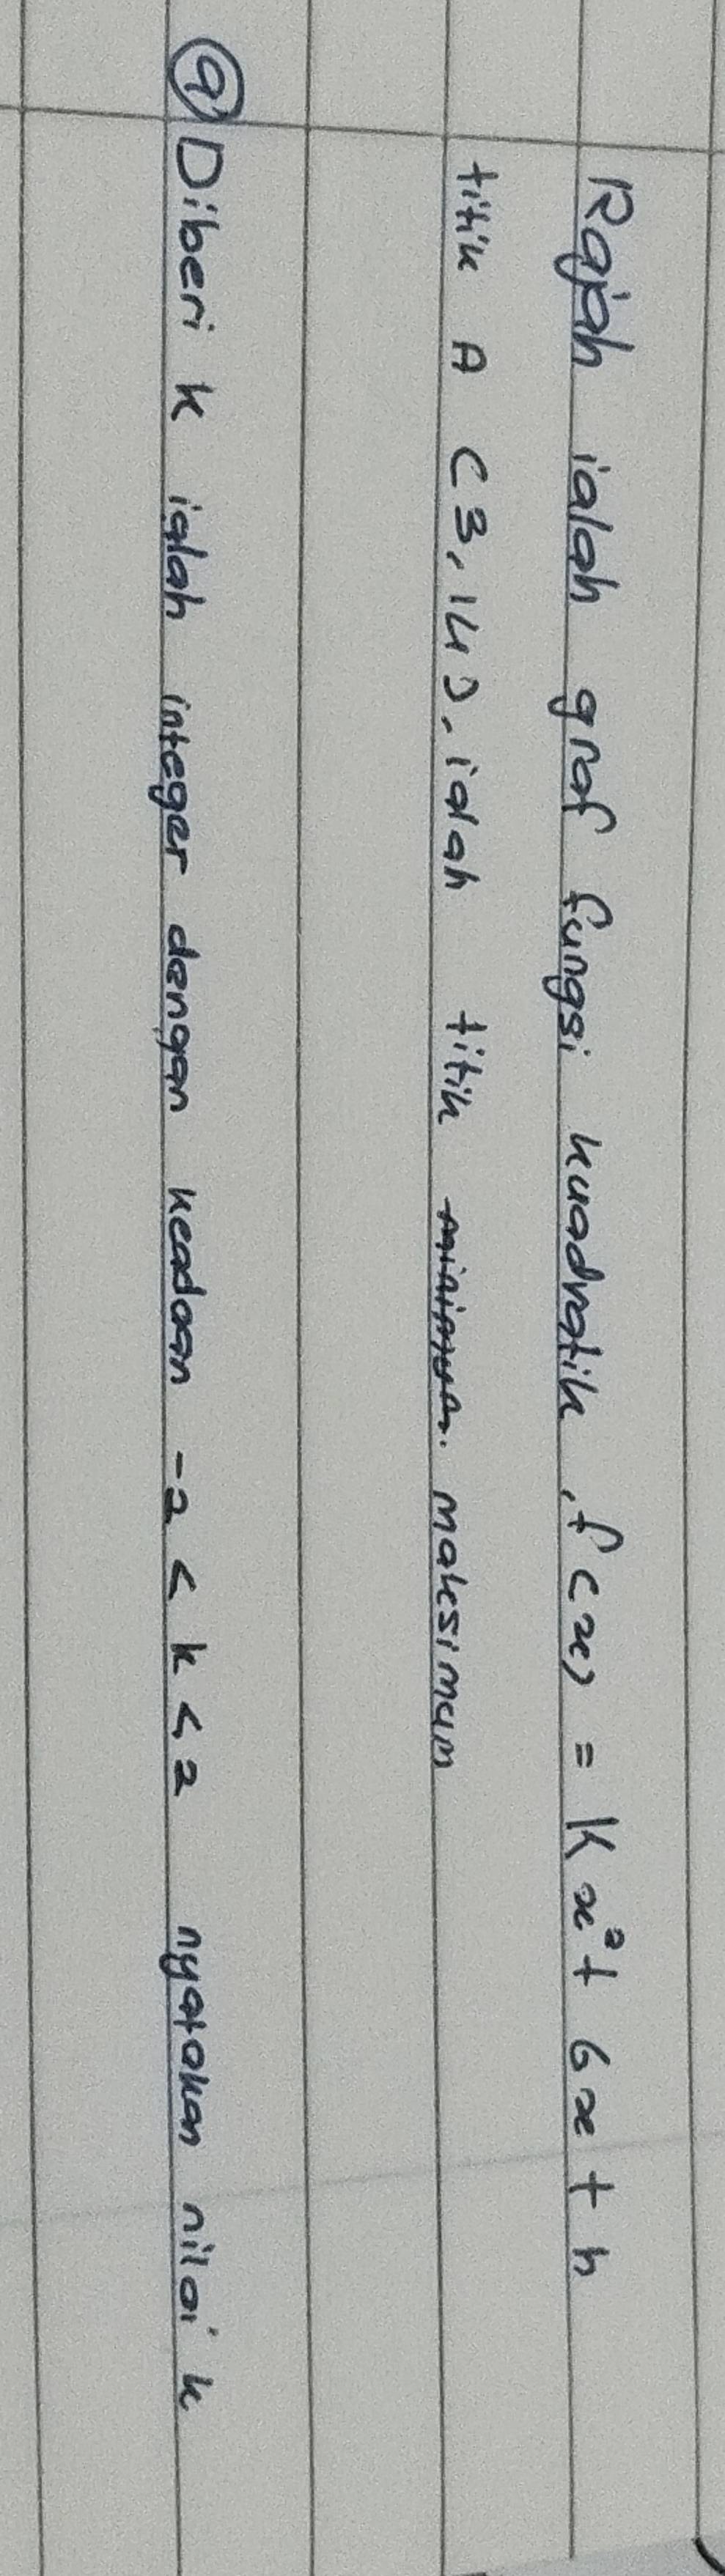 Rajah ialah graf fungsi kuadratik, f(x) = kx² + 6x + h
titik A (3, 14), ialah titik minimum. maksimum
ⓐ Diberi k ialah integer dengan keadaan -2 < k < 2 nyatakan nilai k